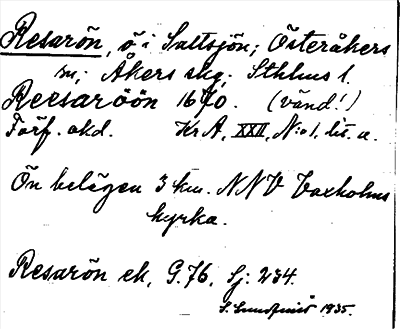 Resarön, ö i Saltsjön; Österåkers
sn; Åkers skg. Sthlms l.
Reesaröön 1670. (vänd!)
Förf. okd. Kr A, XXII, N:o 1, lit. a.
Ön belägen 3 km. NNV Vaxholms
kyrka.
Resarön ek, G.76, Sj: 234.
S. 1935.